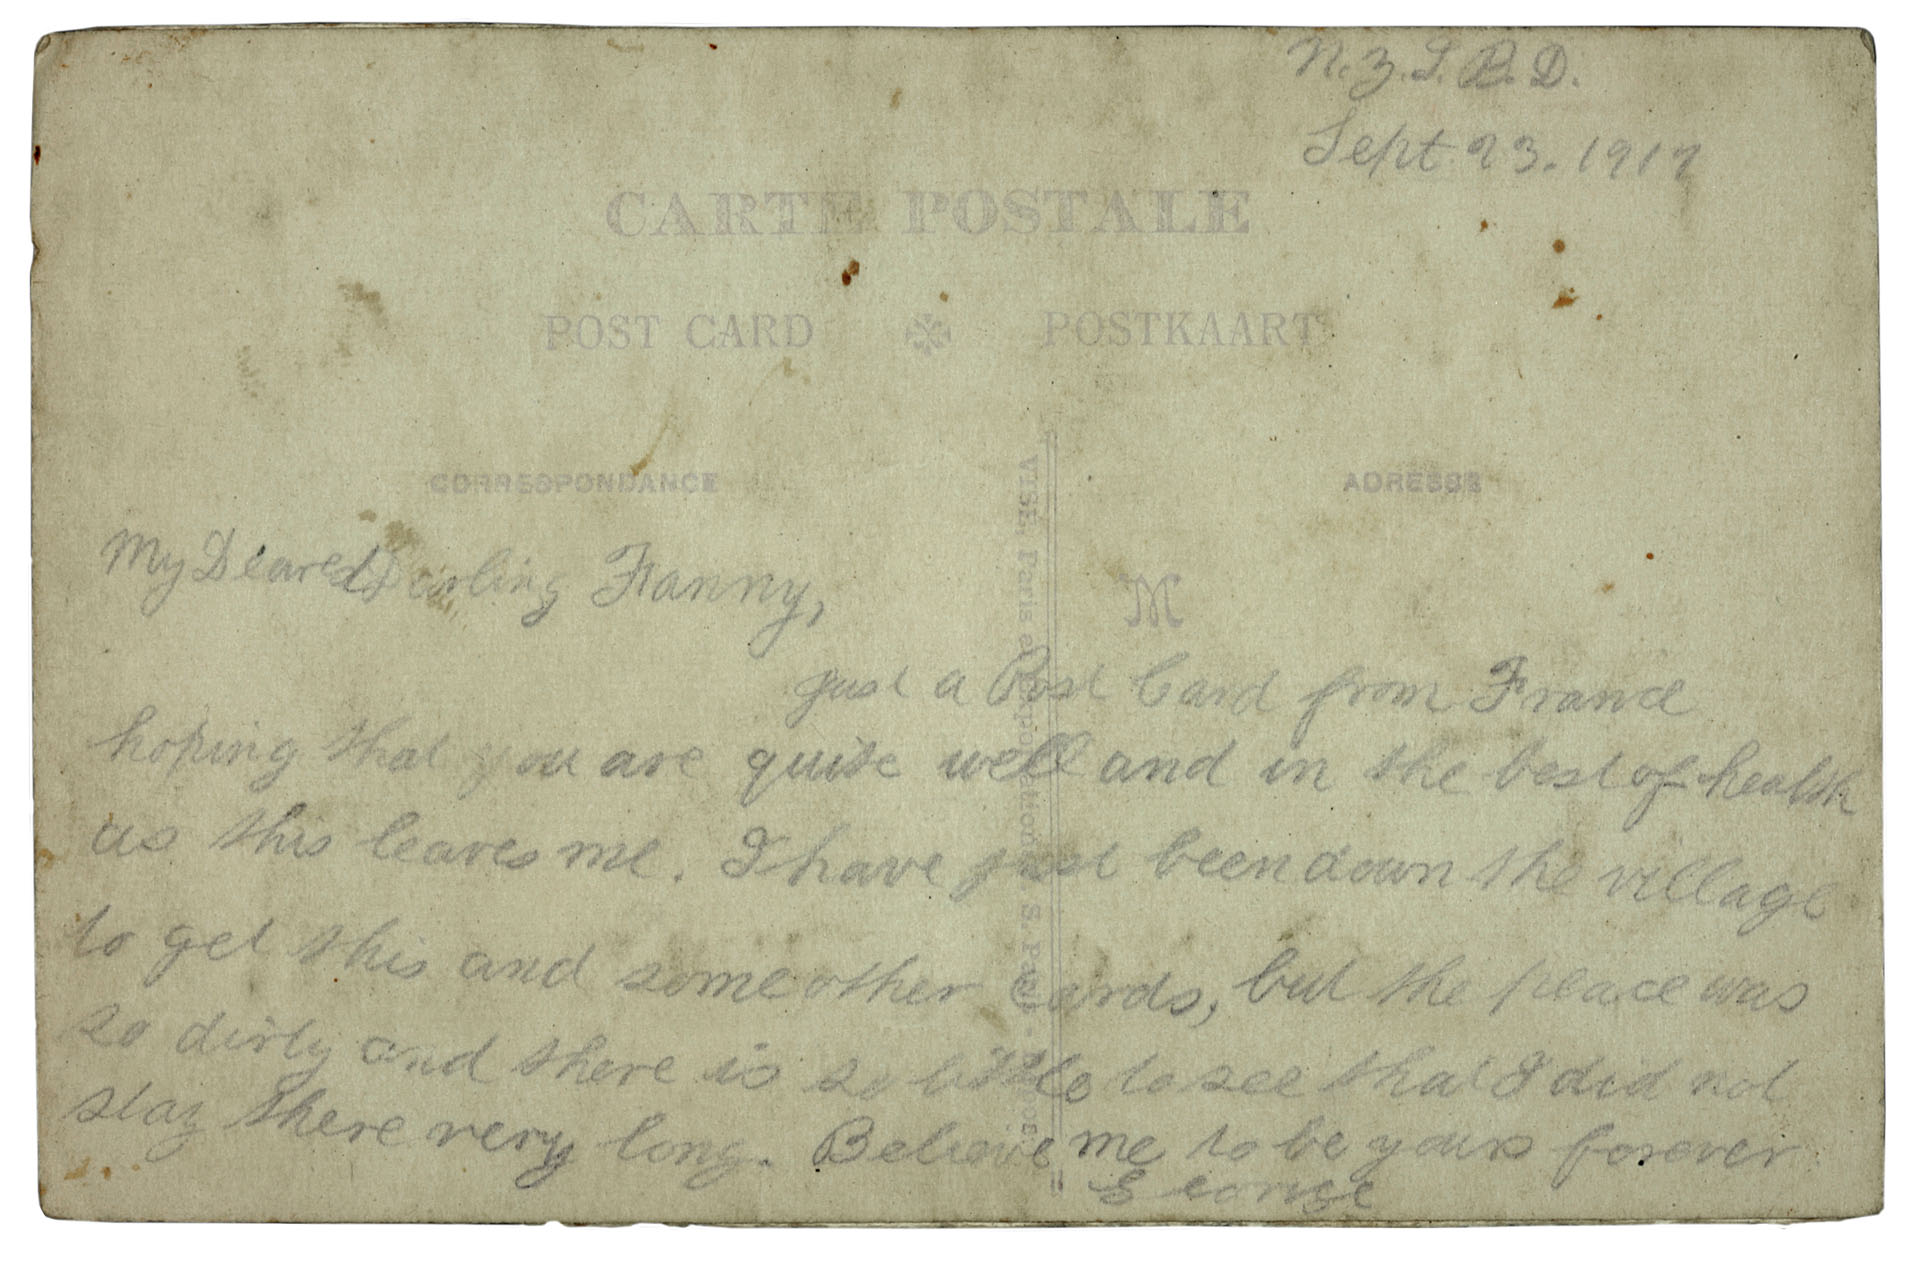 N.Z.I.B.D.
Sept 23. 1917
CARTE POSTALE
POST CARD POSTKAART
CORRESPONDANCE ADRESSE
My Dearest Darling Franny,
M
just a Post Card from France
hoping that you are quite well and in the best of health
as this leaves me. I have just been down the village
to get this and some other cards, but the place was
so dirty and there is so little to see that I did not
stay there very long. Believe me to be yours forever
George
VISE. Paris S.